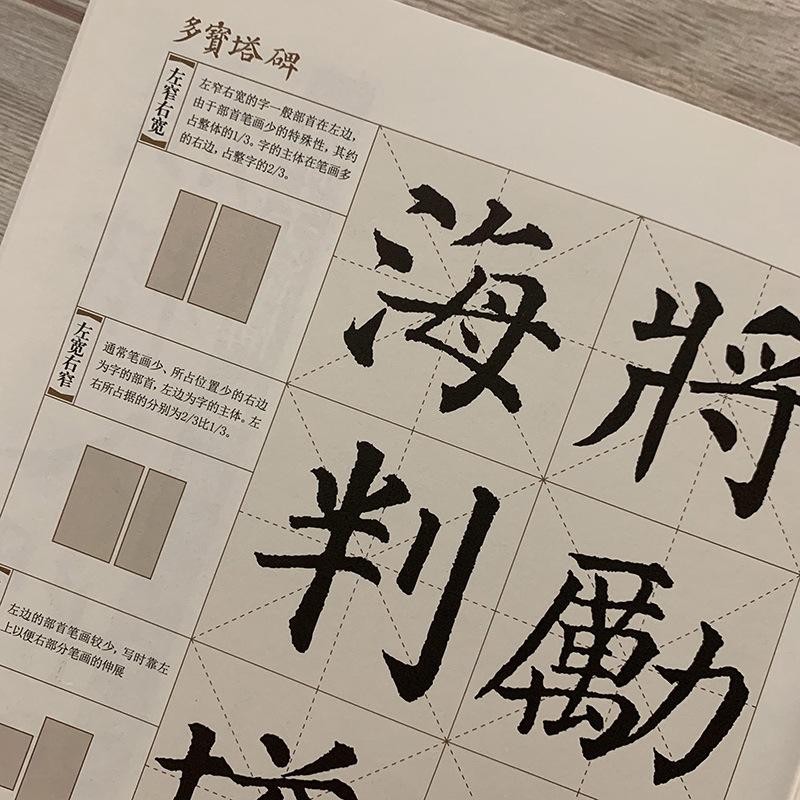 多寶塔碑
左窄右宽
左窄右宽的字一般部首在左边，
由于部首笔画少的特殊性，其约
占整体的1/3。字的主体在笔画多
的右边，占整字的2/3。
海 將
左宽右窄
通常笔画少、所占位置少的右边
为字的部首，左边为字的主体。左
右所占据的分别为2/3比1/3。
判 勵
左边的部首笔画较少，写时靠左
上以便右部分笔画的伸展